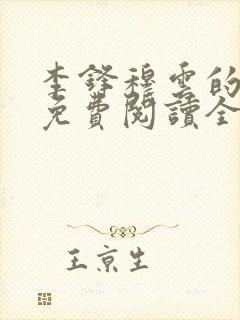 李鋒穆雲的
免費閱讀全
王京生